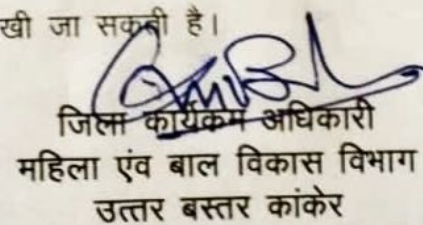 खी जा सकती है।
जिला कार्यकम अधिकारी
महिला एंव बाल विकास विभाग
उत्तर बस्तर कांकेर